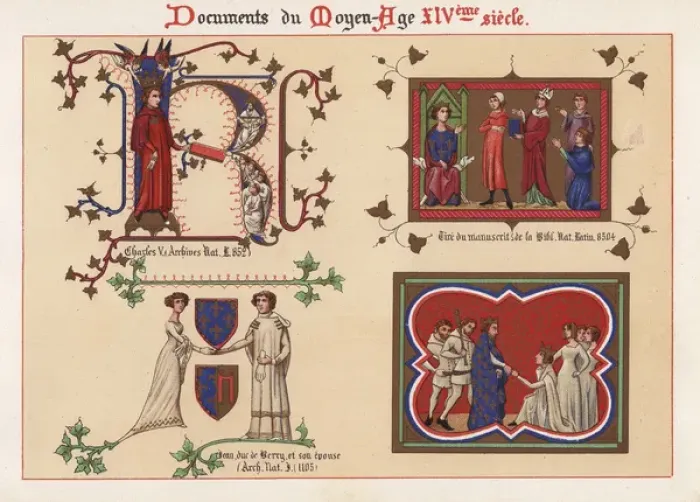 Documents du Moyen-Age XIVème siècle.
R
Charles V. Archives Nat. K. 852)
Tiré du manuscrit: de la Bibl. Nat. Latin, 8504
Jean, duc de Berry, et son épouse
(Arch. Nat. J. (1105)